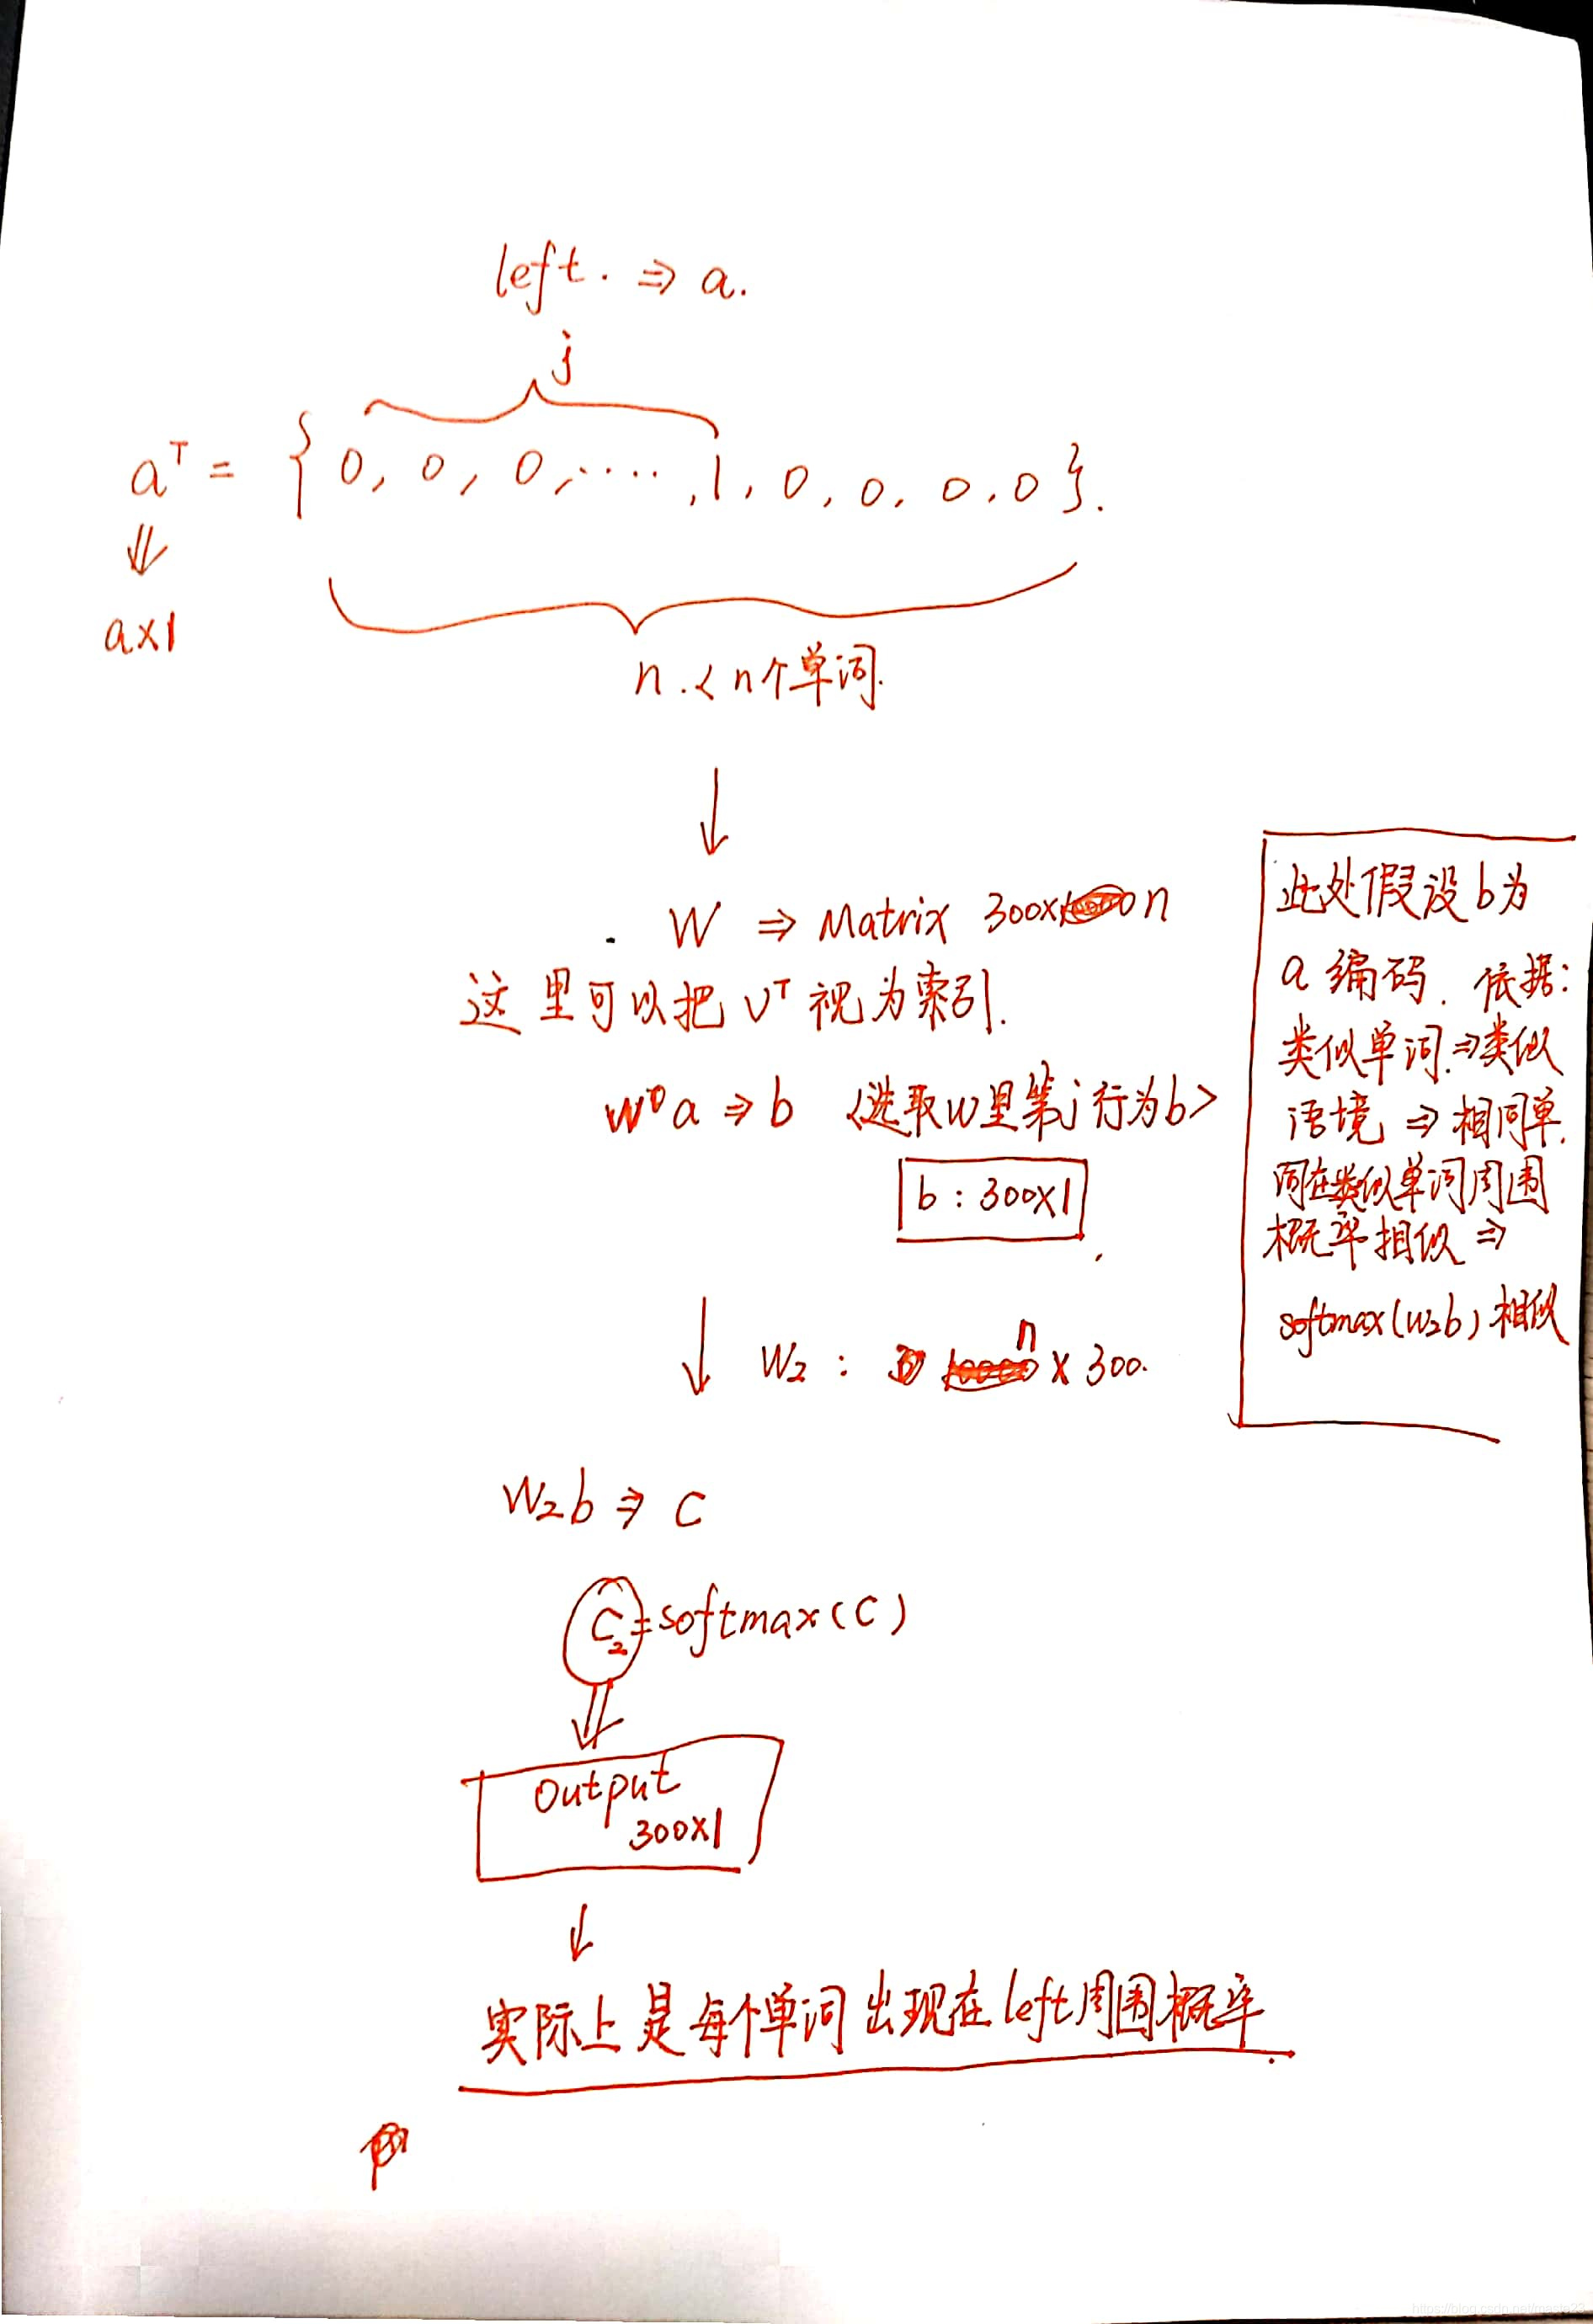 left. ⇒ a.
j
aᵀ = { 0, 0, 0, ····, 1, 0, 0, 0, 0 }.
⇓
a×1
n. < n个单词.
↓
W ⇒ Matrix 300× n
这里可以把 νᵀ 视为索引.
a ⇒ b <选取w里第j行为b>
b : 300×1
↓ W₂ : n × 300.
此处假设b为
a 编码. 依据:
类似单词.⇒类似
语境 ⇒ 相同单.
词在类似单词周围
概率相似 ⇒
softmax(w₂b) 相似
W₂b ⇒ C
C₂=softmax(C)
⇓
Output
300×1
↓
实际上是每个单词出现在left周围概率.